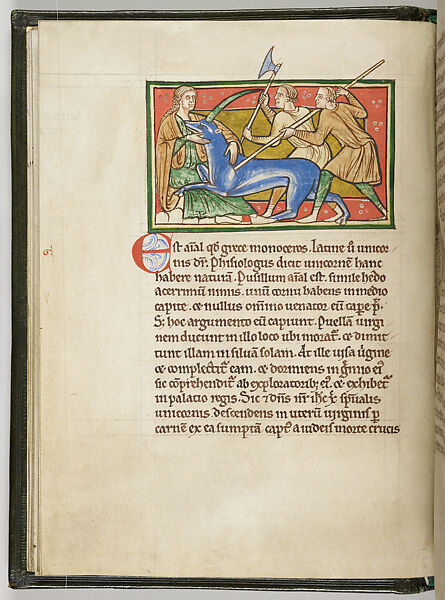 Est aīal qd grece monoceros. Latine ū unicor
nis dr̄. Phisiologus dicit unicornem hanc
habere naturā. Pusillum aīal est. simile hedo
acerrimum nimis. unū cornu habens in medio
capite. ⁊ nullus om̄ino uenator eū cape p̄t.
S; hoc argumento eū capiunt. Puellā uirgi
nem ducunt in illo loco ubi morat̄. ⁊ dimit
tunt illam in siluā solam. At ille uisa uirgine
⁊ complectit̄ eam. ⁊ dormiens in gremio ei᷒
sic c̄prehendit̄ ab exploratorib; ei᷒. ⁊ exhibet̄
in palatio regis. Sic ⁊ dn̄s nr̄ ih̄c x̄p̄ sp̄ualis
unicornis descendens in uterū uirginis p̱
carnē ex ea sumptā capt᷒ a iudeis morte crucis